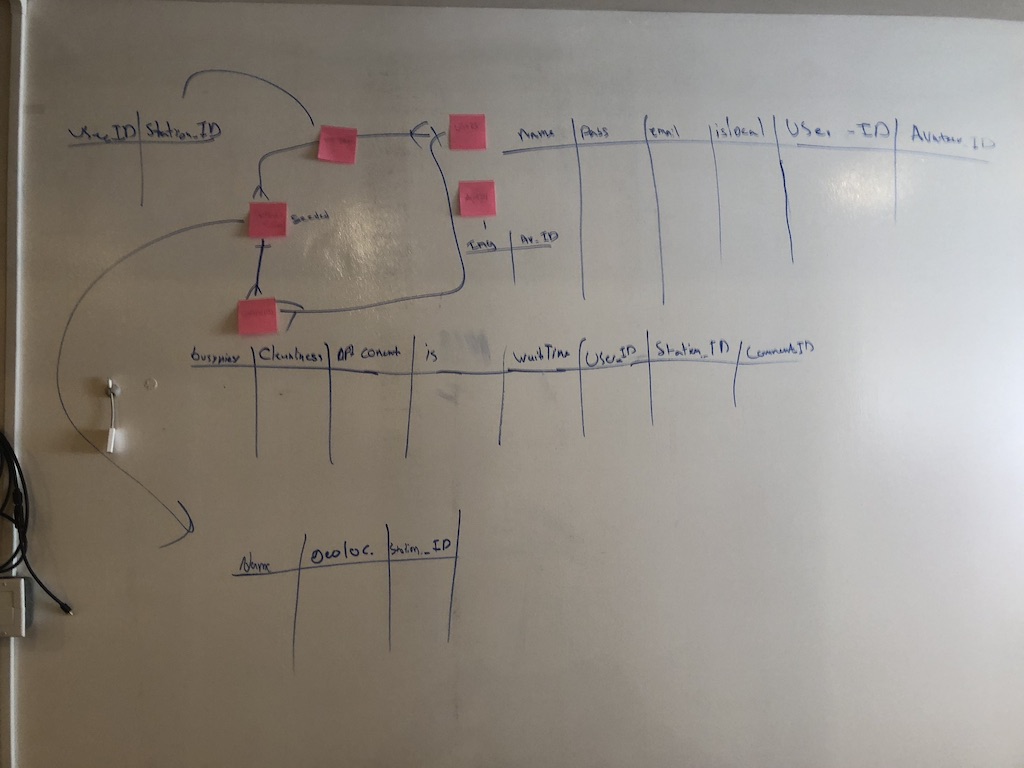 User_ID Station_ID
Name Pass Email islocal User-ID Avatar_ID
Seeded
Img Av.ID
busyness Cleanliness API Coment is WaitTime User_ID Station_ID CommentID
Name geoloc. Station_ID